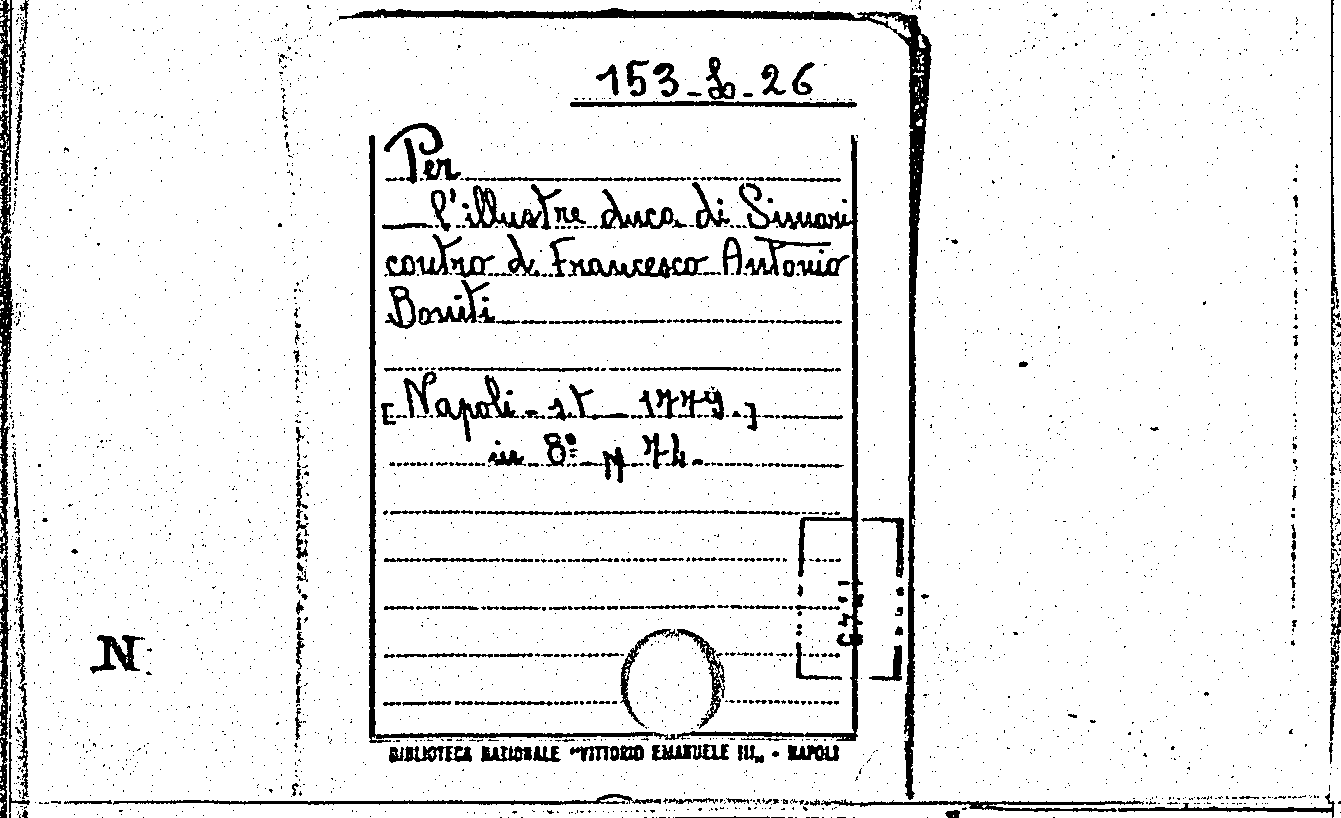 153-Lo-26
Per
l'illustre duca di Sinnari
contro d. Francesco Antonio
Boniti
[Napoli - s.t - 1779.]
in 8º N 74.
N
BIBLIOTECA NAZIONALE "VITTORIO EMANUELE III" - NAPOLI